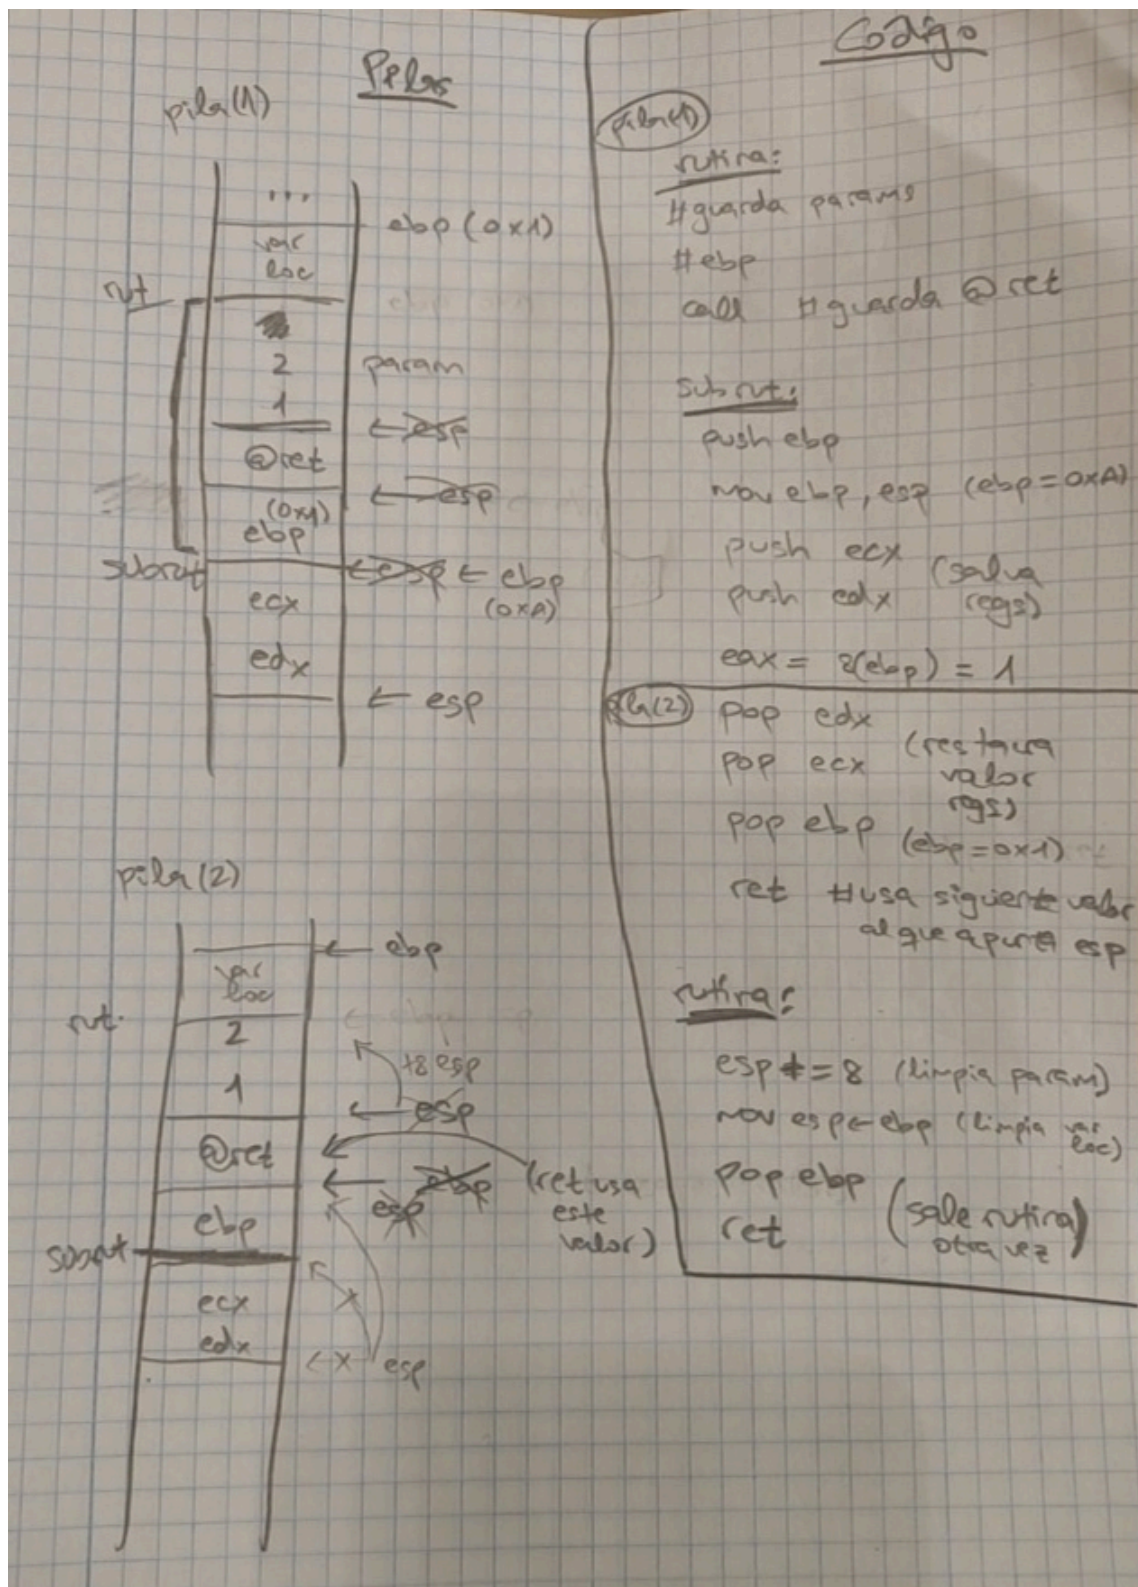 Pilas
pila(1)
...
ebp (0x1)
var
loc
rut
2
param
1
← esp
@ret
← esp
(0x1)
ebp
subrut
← esp ← ebp
(0xA)
ecx
edx
← esp
pila(2)
← ebp
var
loc
rut.
2
+8 esp
1
← esp
@ret
← ebp
esp
(ret usa
este
valor)
ebp
subrut
ecx
edx
← x esp
Código
pila(1)
rutina:
#guarda params
#ebp
call #guarda @ret
subrut:
push ebp
mov ebp, esp (ebp=0xA)
push ecx
push edx
(salva
regs)
eax = 8(ebp) = 1
pila(2)
pop edx
pop ecx
(restaura
valor
regs)
pop ebp
(ebp=0x1)
ret #usa siguiente valor
al que apunta esp
rutina:
esp += 8 (limpia param)
mov esp ← ebp (limpia var
loc)
pop ebp
ret
(sale rutina
otra vez)